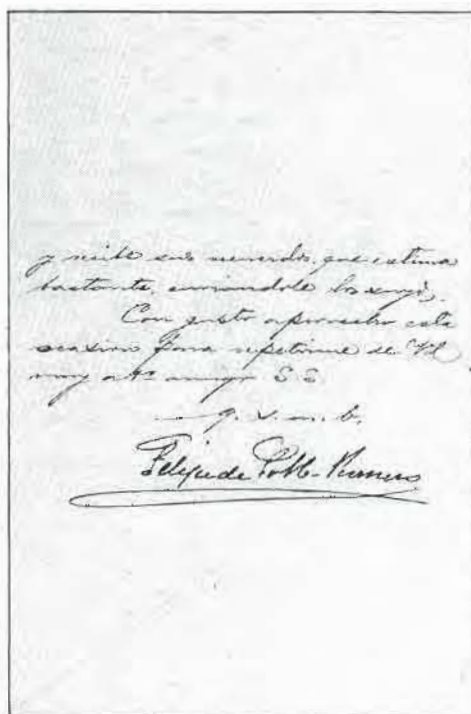 y recibe sus recuerdos, que estima
bastante, enviandole los suyos.
Con gusto aprovecho esta
ocasion para repetirme de Vd
muy atto amigo S. S.
q. s. m. b.
Felipe de Pablo-Romero